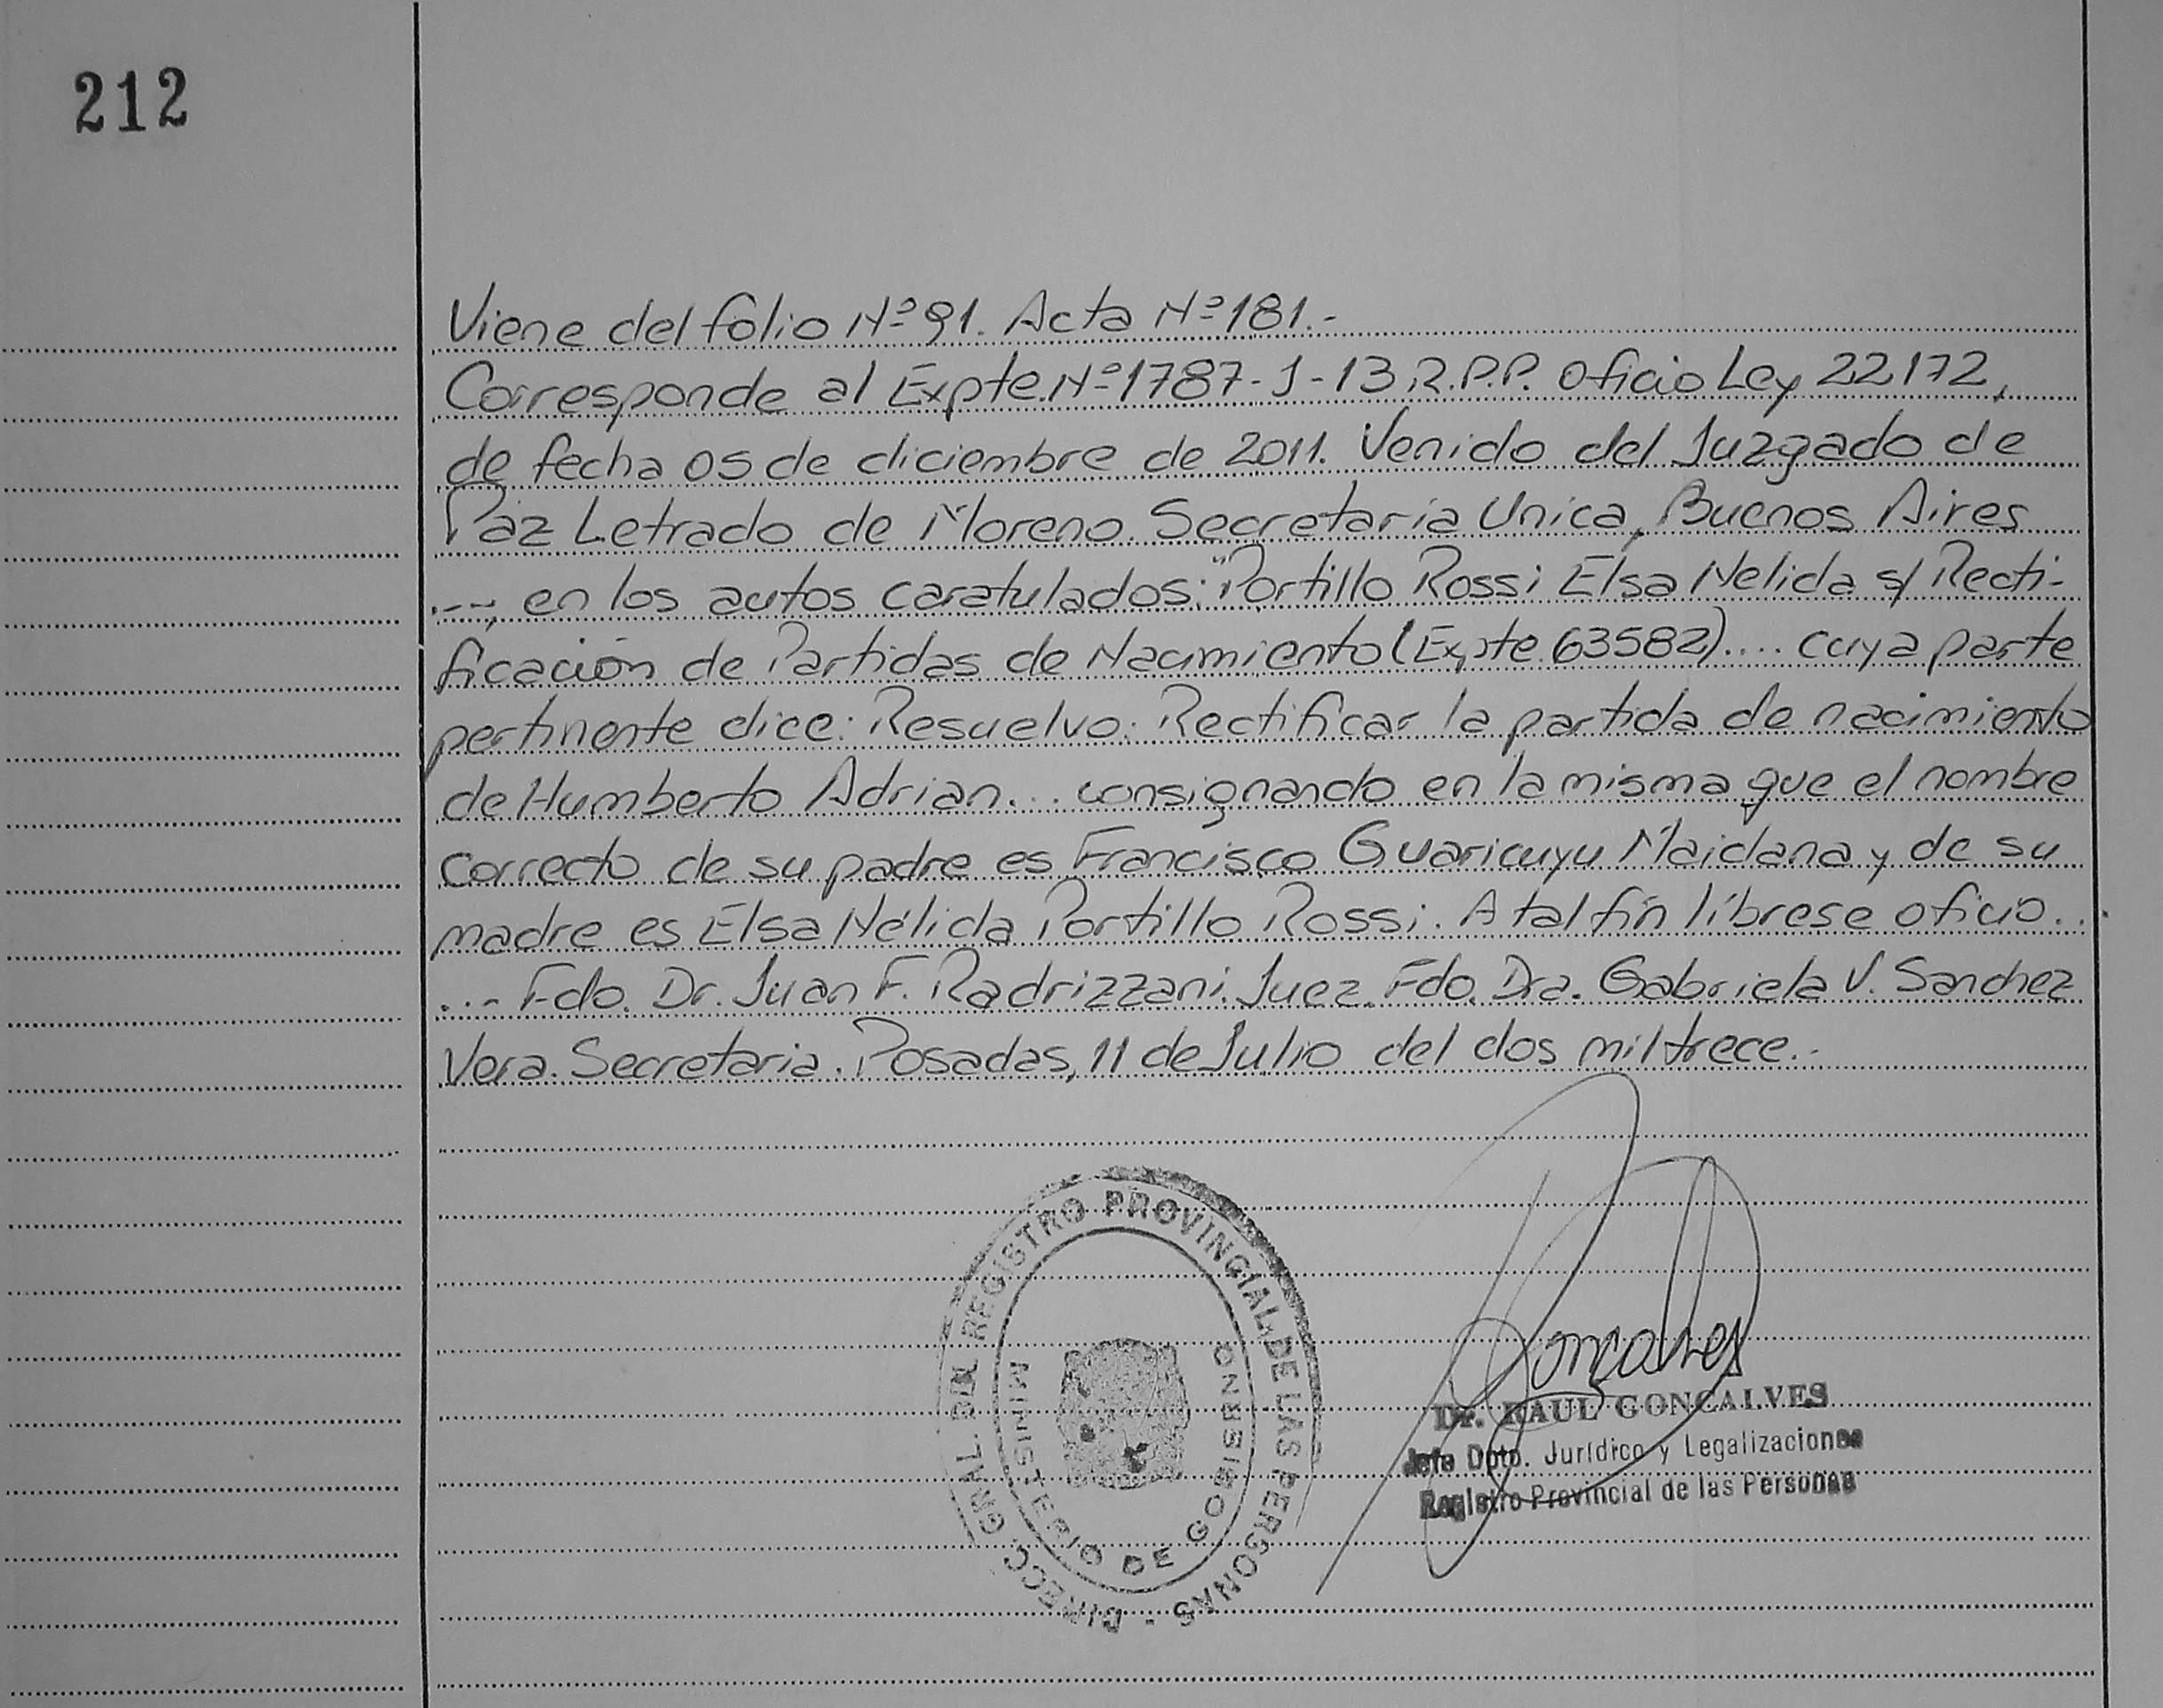 212
Viene del folio Nº 91. Acta Nº 181.-
Corresponde al Expte. Nº 1787-J-13 R.P.P. Oficio Ley 22172,
de fecha 05 de diciembre de 2011. Venido del Juzgado de
Paz Letrado de Moreno. Secretaría Unica, Buenos Aires
...-, en los autos caratulados: "Portillo Rossi Elsa Nelida s/ Recti-
ficación de Partidas de Nacimiento (Expte. 63582).... cuya parte
pertinente dice: Resuelvo: Rectificar la partida de nacimiento
de Humberto Adrian... consignando en la misma que el nombre
correcto de su padre es Francisco Guaricuyu Maidana y de su
madre es Elsa Nélida Portillo Rossi. A tal fin líbrese oficio...
...- Fdo. Dr. Juan F. Radrizzani. Juez. Fdo. Dra. Gabriela V. Sanchez
Vera. Secretaria. Posadas, 11 de Julio del dos mil trece.-
DIRECC. GRAL. DEL REGISTRO PROVINCIAL DE LAS PERSONAS -
MINISTERIO DE GOBIERNO
Goncalves
Dr. RAUL GONCALVES
Jefe Dpto. Jurídico y Legalizaciones
Registro Provincial de las Personas